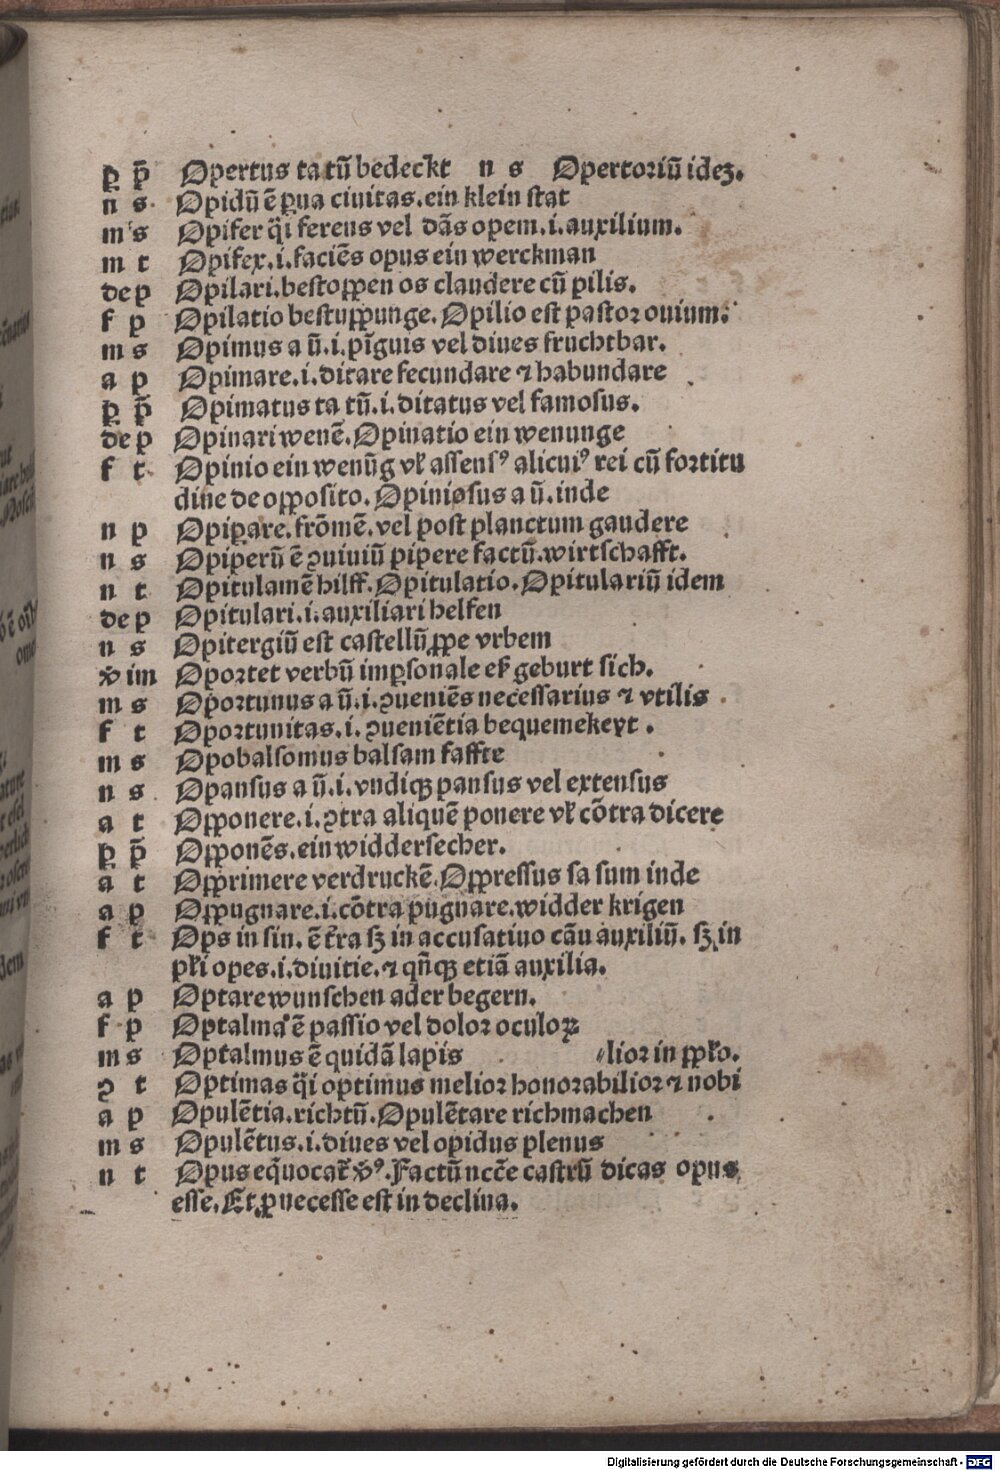 ꝑ p̄ Opertus ta tū bedeckt n s Opertoriū ideʒ.
n s Opidū ē ꝑua ciuitas. ein klein stat
m s Opifer q̄i ferens vel dās opem. i. auxilium.
m t Opifex. i. faciēs opus ein werckman
de p Opilari. bestoppen os claudere cū pilis.
f p Opilatio bestuppunge. Opilio est pastor ouium.
m s Opimus a ū. i. pīguis vel diues fruchtbar.
a p Opimare. i. ditare fecundare ⁊ habundare
ꝑ p̄ Opimatus ta tū. i. ditatus vel famosus.
de p Opinari wenē. Opinatio ein wenunge
f t Opinio ein wenūg vł assensꝰ alicuiꝰ rei cū fortitu
dine de opposito. Opiniosus a ū. inde
n p Opiꝑare. frōmē. vel post planctum gaudere
n s Opiperū ē ꝯuiuiū pipere factū. wirtschafft.
n t Opitulamē hilff. Opitulatio. Opitulariū idem
de p Opitulari. i. auxiliari helfen
n s Opitergiū est castellū ꝓpe vrbem
v̄ im Oportet verbū imꝑsonale eſ geburt sich.
m s Oportunus a ū. i. ꝯueniēs necessarius ⁊ vtilis
f t Oportunitas. i. ꝯueniētia bequemekeyt.
m s Opobalsomus balsam saffte
n s Opansus a ū. i. vndiqꝫ pansus vel extensus
a t Opponere. i. ꝯtra aliquē ponere vł cōtra dicere
ꝑ p̄ Opponēs. ein widdersecher.
a t Opprimere verdruckē. Oppressus sa sum inde
a p Oppugnare. i. cōtra pugnare. widder krigen
f t Ops in sin. ē t̄ra sꝫ in accusatiuo cāu auxiliū. sꝫ in
płi opes. i. diuitie. ⁊ qn̄qꝫ etiā auxilia.
a p Optare wunschen ader begern.
f p Optalmaˢ ē passio vel dolor oculoꝝ
m s Optalmus ē quidā lapis ⸗lior in ppło.
ꝯ t Optimas q̄i optimus melior honorabilior ⁊ nobi
a p Opulētia. richtū. Opulētare richmachen
m s Opulētus. i. diues vel opidus plenus
n t Opus eq̄uocat̄ v̄ꝰ. Factū nccē castrū dicas opus
esse. Et ꝓ necesse est in declina.
Digitalisierung gefördert durch die Deutsche Forschungsgemeinschaft - DFG